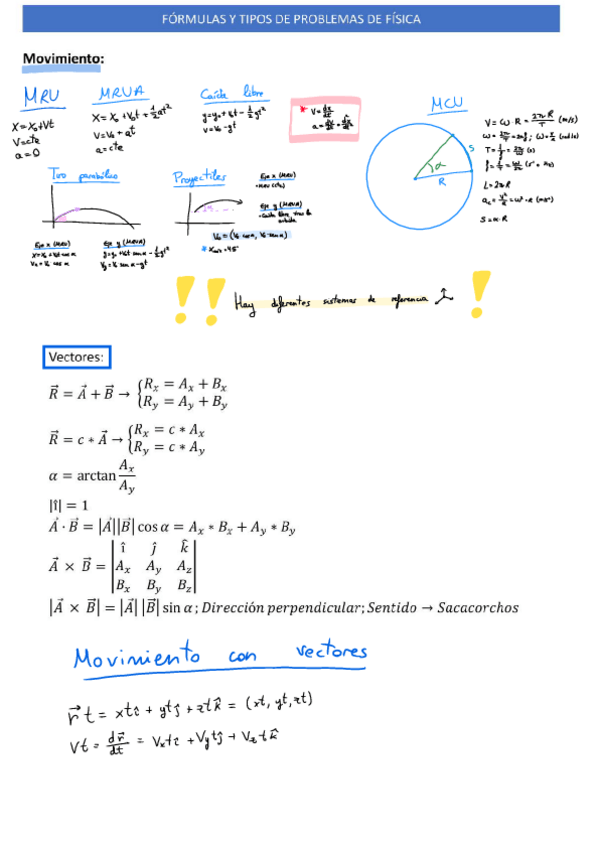 FÓRMULAS Y TIPOS DE PROBLEMAS DE FÍSICA
Movimiento:
MRU
X = X₀ + Vt
V = cte
a = 0
MRUA
X = X₀ + V₀t + ½at²
V = V₀ + at
a = cte
Caída libre
y = y₀ + V₀t - ½gt²
V = V₀ - gt
* V = dx/dt
MCU
V = ω · R = 2πR/T (m/s)
L = 2πR
S = α · R
α
R
S
Tiro parabólico
Eje x (MRU)
X = X₀ + V₀t cos α
Vx = V₀ cos α
Eje y (MRUA)
y = y₀ + V₀t sen α - ½gt²
Vy = V₀ sen α - gt
Proyectiles
Eje x (MRU)
Eje y (MRUA)
V₀ = (V₀ cos α, V₀ sen α)
! ! Hay diferentes sistemas de referencia !
Vectores:
R⃗ = A⃗ + B⃗ → {Rx = Ax + Bx
Ry = Ay + By
R⃗ = c ∗ A⃗ → {Rx = c ∗ Ax
Ry = c ∗ Ay
α = arctan Ax/Ay
|î| = 1
A⃗ · B⃗ = |A⃗||B⃗| cos α = Ax ∗ Bx + Ay ∗ By
A⃗ × B⃗ = | î ĵ k̂
Ax Ay Az
Bx By Bz |
|A⃗ × B⃗| = |A⃗| |B⃗| sin α ; Dirección perpendicular; Sentido → Sacacorchos
Movimiento con vectores
r⃗t = xtî + ytĵ + ztk̂ = (xt, yt, zt)
Vt = dr⃗/dt = Vxtî + Vytĵ + Vztk̂